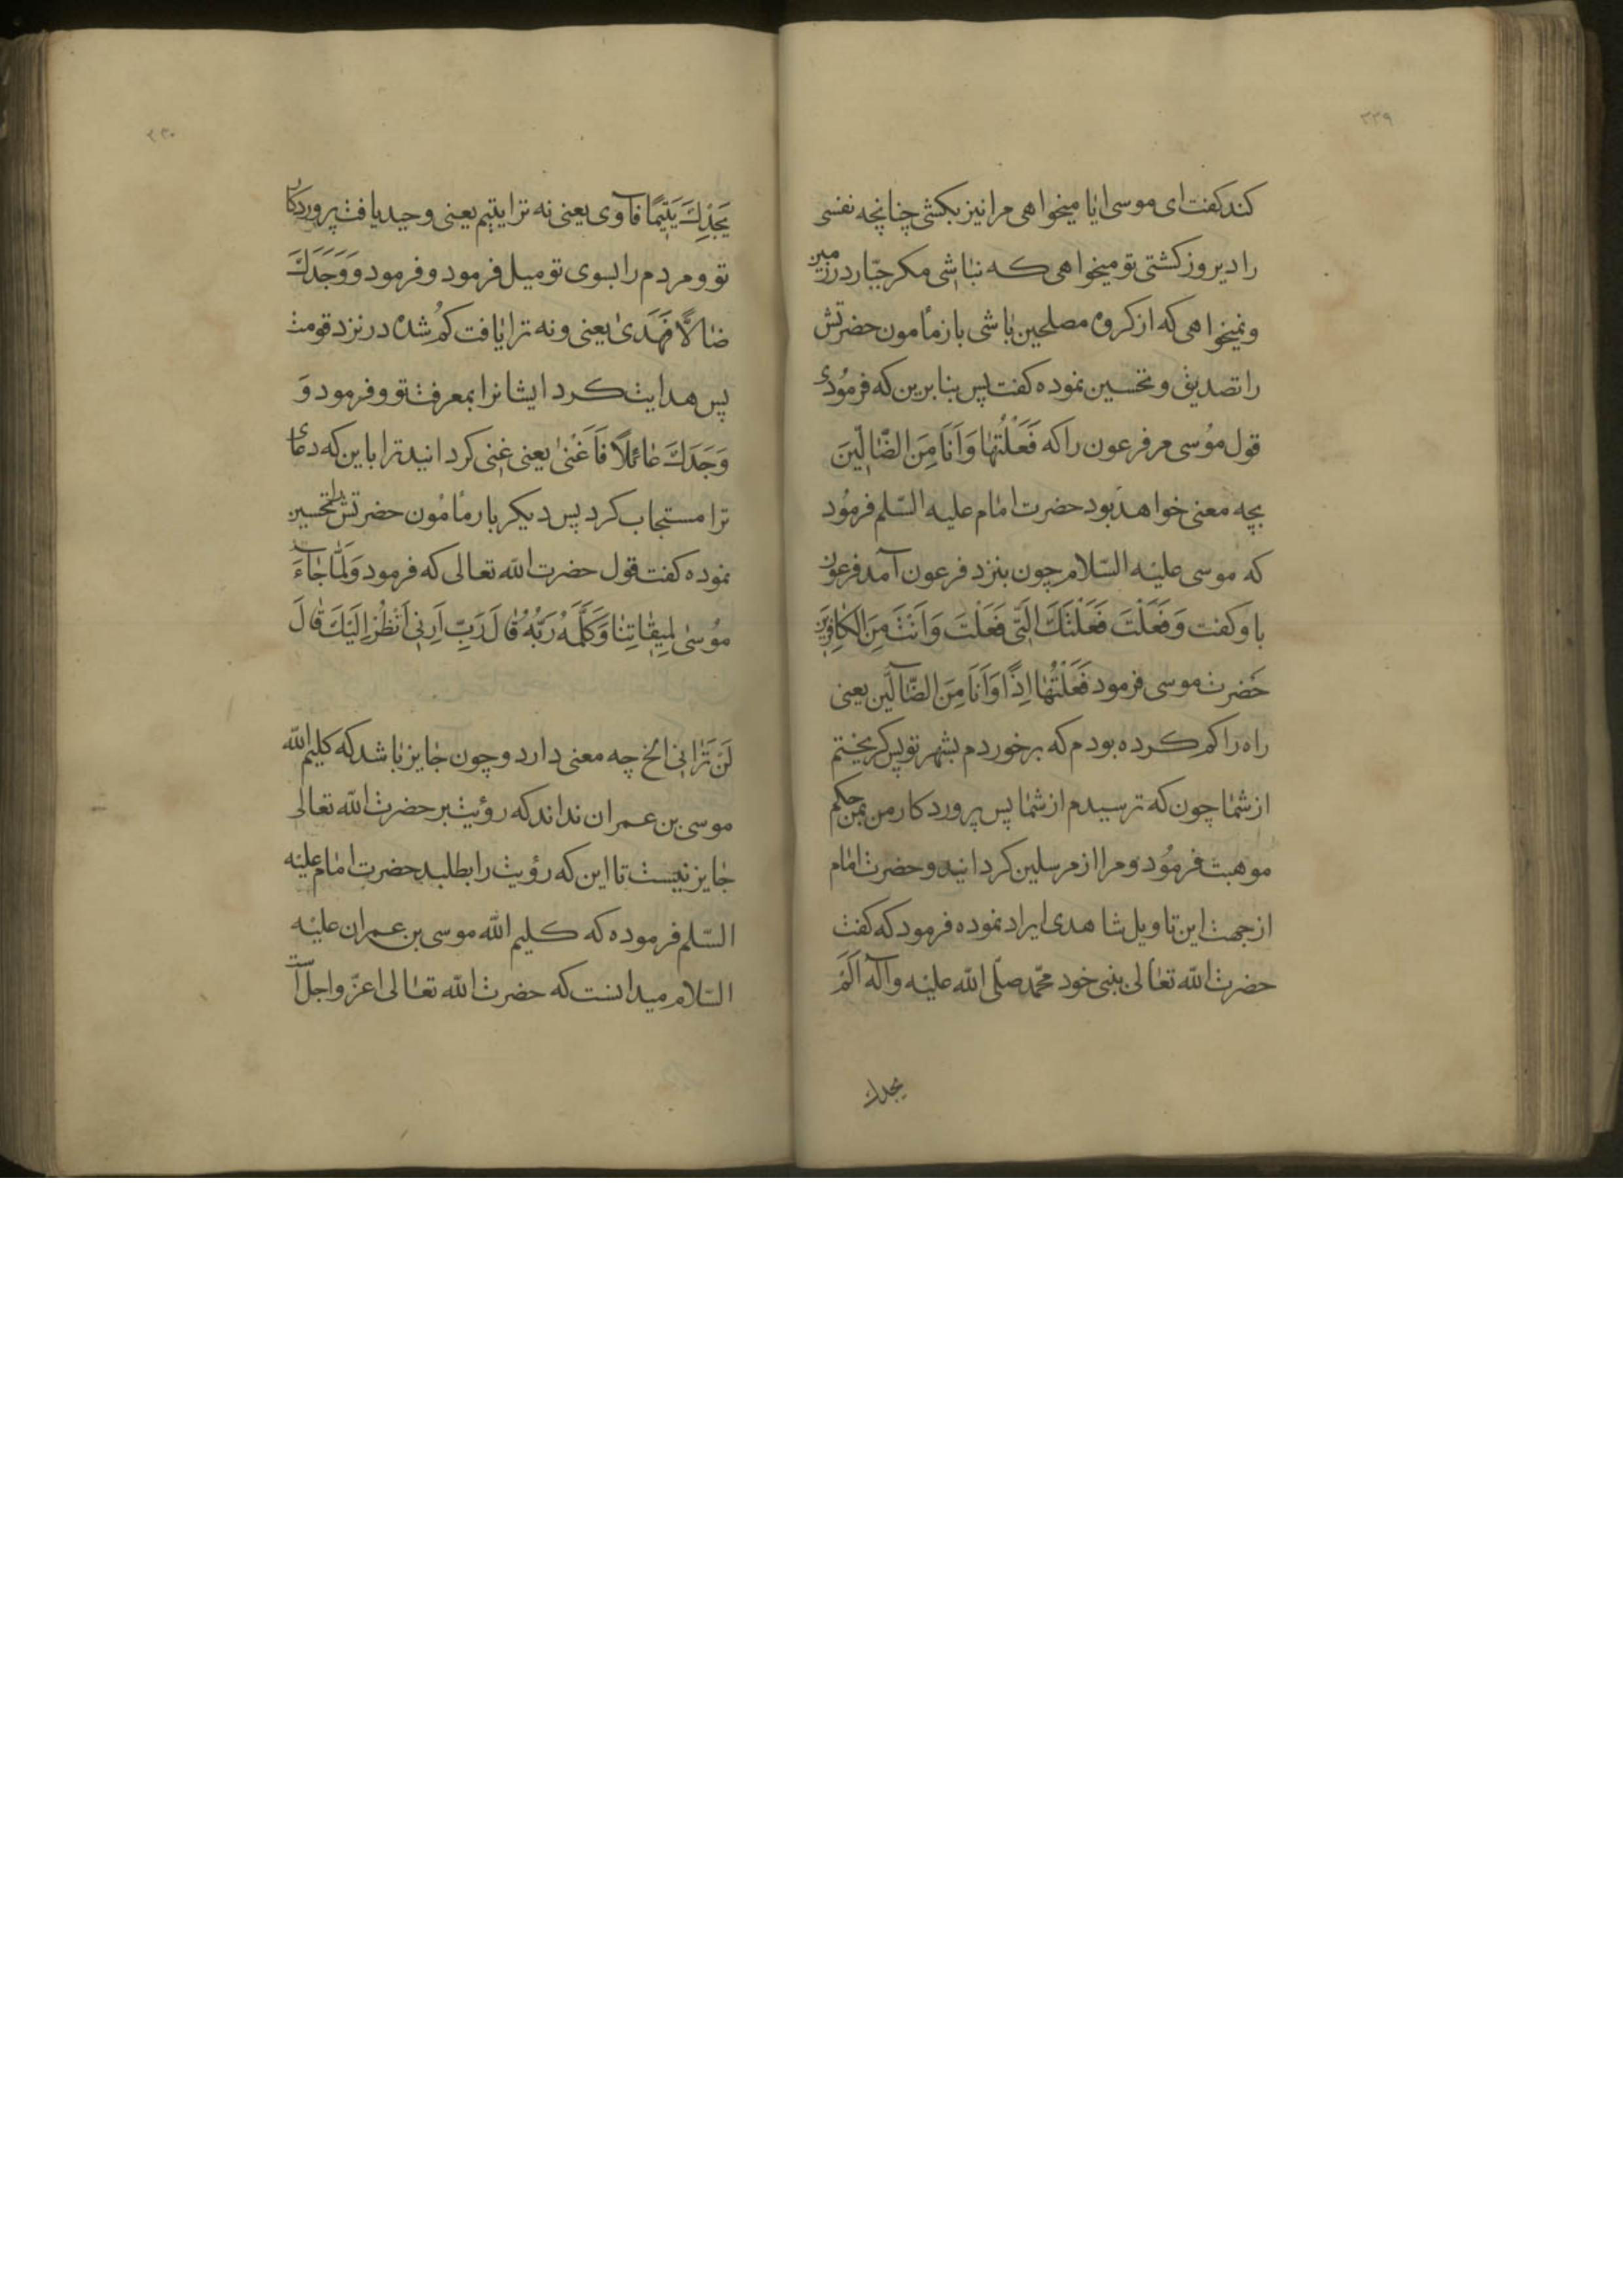 ۳۳۹
کند کفت ای موسی ایا میخواهی مرا نیز بکشی چنانچه نفسی
را دیروز کشتی تو میخواهی که نباشی مکر جبّار در زمین
و نمیخواهی که از کروه مصلحین باشی باز مأمون حضرتش
را تصدیق و تحسین نموده کفت پس بنابرین که فرمُودی
قول مُوسی مر فرعون را که فَعَلْتُهٰا وَاَنَا مِنَ الضّٰالّٖینَ
بچه معنی خواهد بود حضرت امٰام علیه السّلم فرمُود
که موسی علیْه السّلام چون بنزد فرعون آمد فرعون
باو کفت وَفَعَلْتَ فَعْلَتَكَ الَّتٖی فَعَلْتَ وَاَنْتَ مِنَ الْکٰافِرٖینَ
حَضرت موسی فرمود فَعَلْتُهٰا اِذًا وَاَنَا مِنَ الضّٰآلّین یعنی
راه را کم کرده بودم که برخوردم بشهر تو پس کریختم
از شمٰا چون که ترسیدم از شمٰا پس پروردکار من بمن حکم
موهبت فرمُود و مرا از مرسلین کردانید و حضرت امٰام
از جهت این تاویل شاهدی ایراد نموده فرمود که کفت
حضرت اللّه تعٰالی بنبی خود محمّد صلّی اللّه علیْه وآله اَلَمْ
یجدك
۳۳۰
یَجِدْكَ یَتٖیمًا فآوی یعنی نه ترا یتیم یعنی وحید یافت پروردکار
تو و مردم را بسوی تو میل فرمود و فرمود وَوَجَدَكَ
ضٰالًّا فَهَدٰی یعنی و نه ترا یٰافت کُم شده در نزد قومت
پس هدایت کرد ایشانرا بمعرفت تو و فرمود وَ
وَجَدَكَ عٰائلًا فَاَغْنٰی یعنی غنی کردانید ترا باین که دعای
ترا مستجاب کرد پس دیکر بار مأمُون حضرتش را تحسین
نموده کفت قول حضرت اللّه تعالی که فرمود وَلَمّٰا جٰآءَ
مُوسٰی لِمٖیقٰاتِنٰا وَکَلَّمَهُ رَبُّهُ قٰالَ رَبِّ اَرِنٖی اَنْظُرْ اِلَیْكَ قٰالَ
لَنْ تَرٰانٖی الخ چه معنی دارد و چون جٰایز بٰاشد که کلیم اللّه
موسی بن عمران نداند که رؤیت بر حضرت اللّه تعالی
جٰایز نیست تا این که رؤیت را بطلبد حضرت امٰام علیْه
السّلم فرموده که کلیم اللّه موسی بن عمران علیْه
السّلام میدانست که حضرت اللّه تعٰالی اعزّ واجلّ است